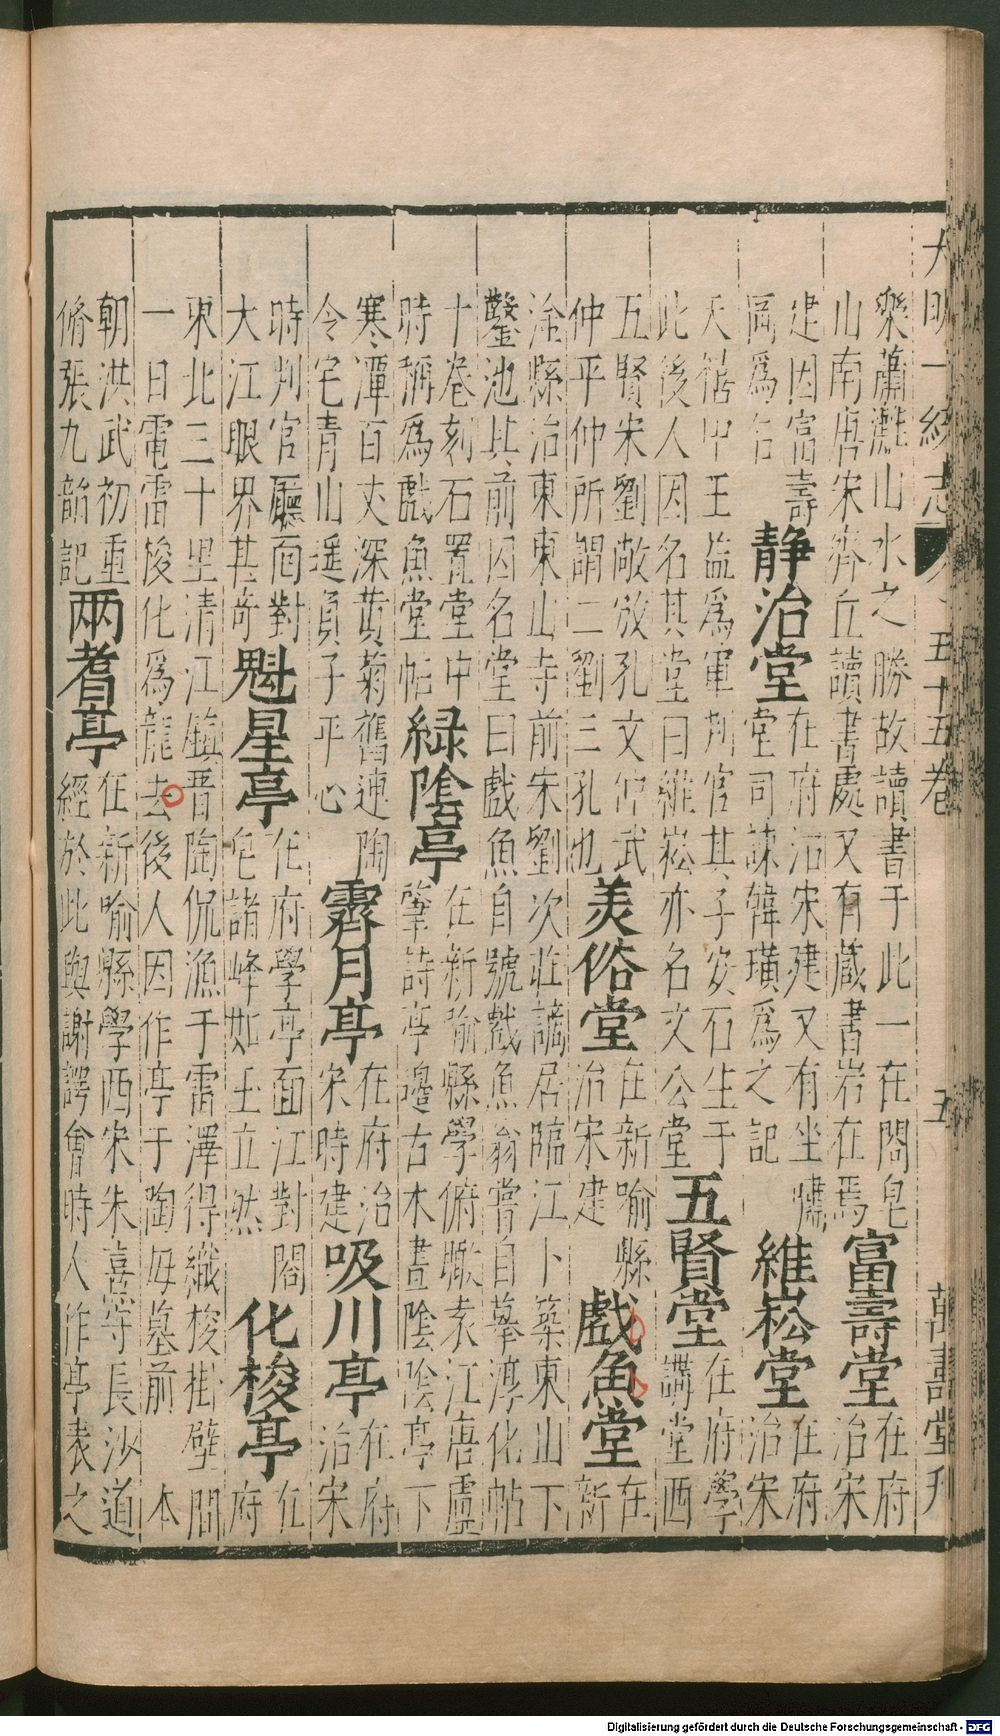 大明一統志 五十五卷 五 萬壽堂刊
樂蕭灘山水之勝故讀書于此一在閤皂
山南唐宋齊丘讀書處又有藏書岩在焉
富壽堂
在府
治宋
建因富壽
扁爲名
静治堂
在府治宋建又有坐嘯
堂司諌韓璜爲之記
維崧堂
在府
治宋
天禧中王益爲軍判官其子安石生于
此後人因名其堂曰維崧亦名文公堂
五賢堂
在府學
講堂西
五賢宋劉敞攽孔文仲武
仲平仲所謂二劉三孔也
美俗堂
在新喻縣
治宋建
戲魚堂
在
新
淦縣治東東山寺前宋劉次莊謫居臨江卜築東山下
鑿池其前因名堂曰戲魚自號戲魚翁嘗自摹淳化帖
十卷刻石置堂中
時稱爲戲魚堂帖
緑陰亭
在新喻縣學俯瞰袁江唐盧
肇詩亭邊古木晝陰陰亭下
寒潭百丈深黄菊舊連陶
令宅青山遥負子平心
霽月亭
在府治
宋時建
吸川亭
在府
治宋
時判官廳面對
大江眼界甚奇
魁星亭
在府學亭面江對閤
皂諸峰如玉立然
化梭亭
在
府
東北三十里清江鎮晋陶侃漁于雷澤得織梭掛壁間
一日電雷梭化爲龍去後人因作亭于陶母墓前 本
朝洪武初重
脩張九韶記
兩耆亭
在新喻縣學西宋朱熹守長沙道
經於此與謝諤會時人作亭表之
Digitalisierung gefördert durch die Deutsche Forschungsgemeinschaft - DFG